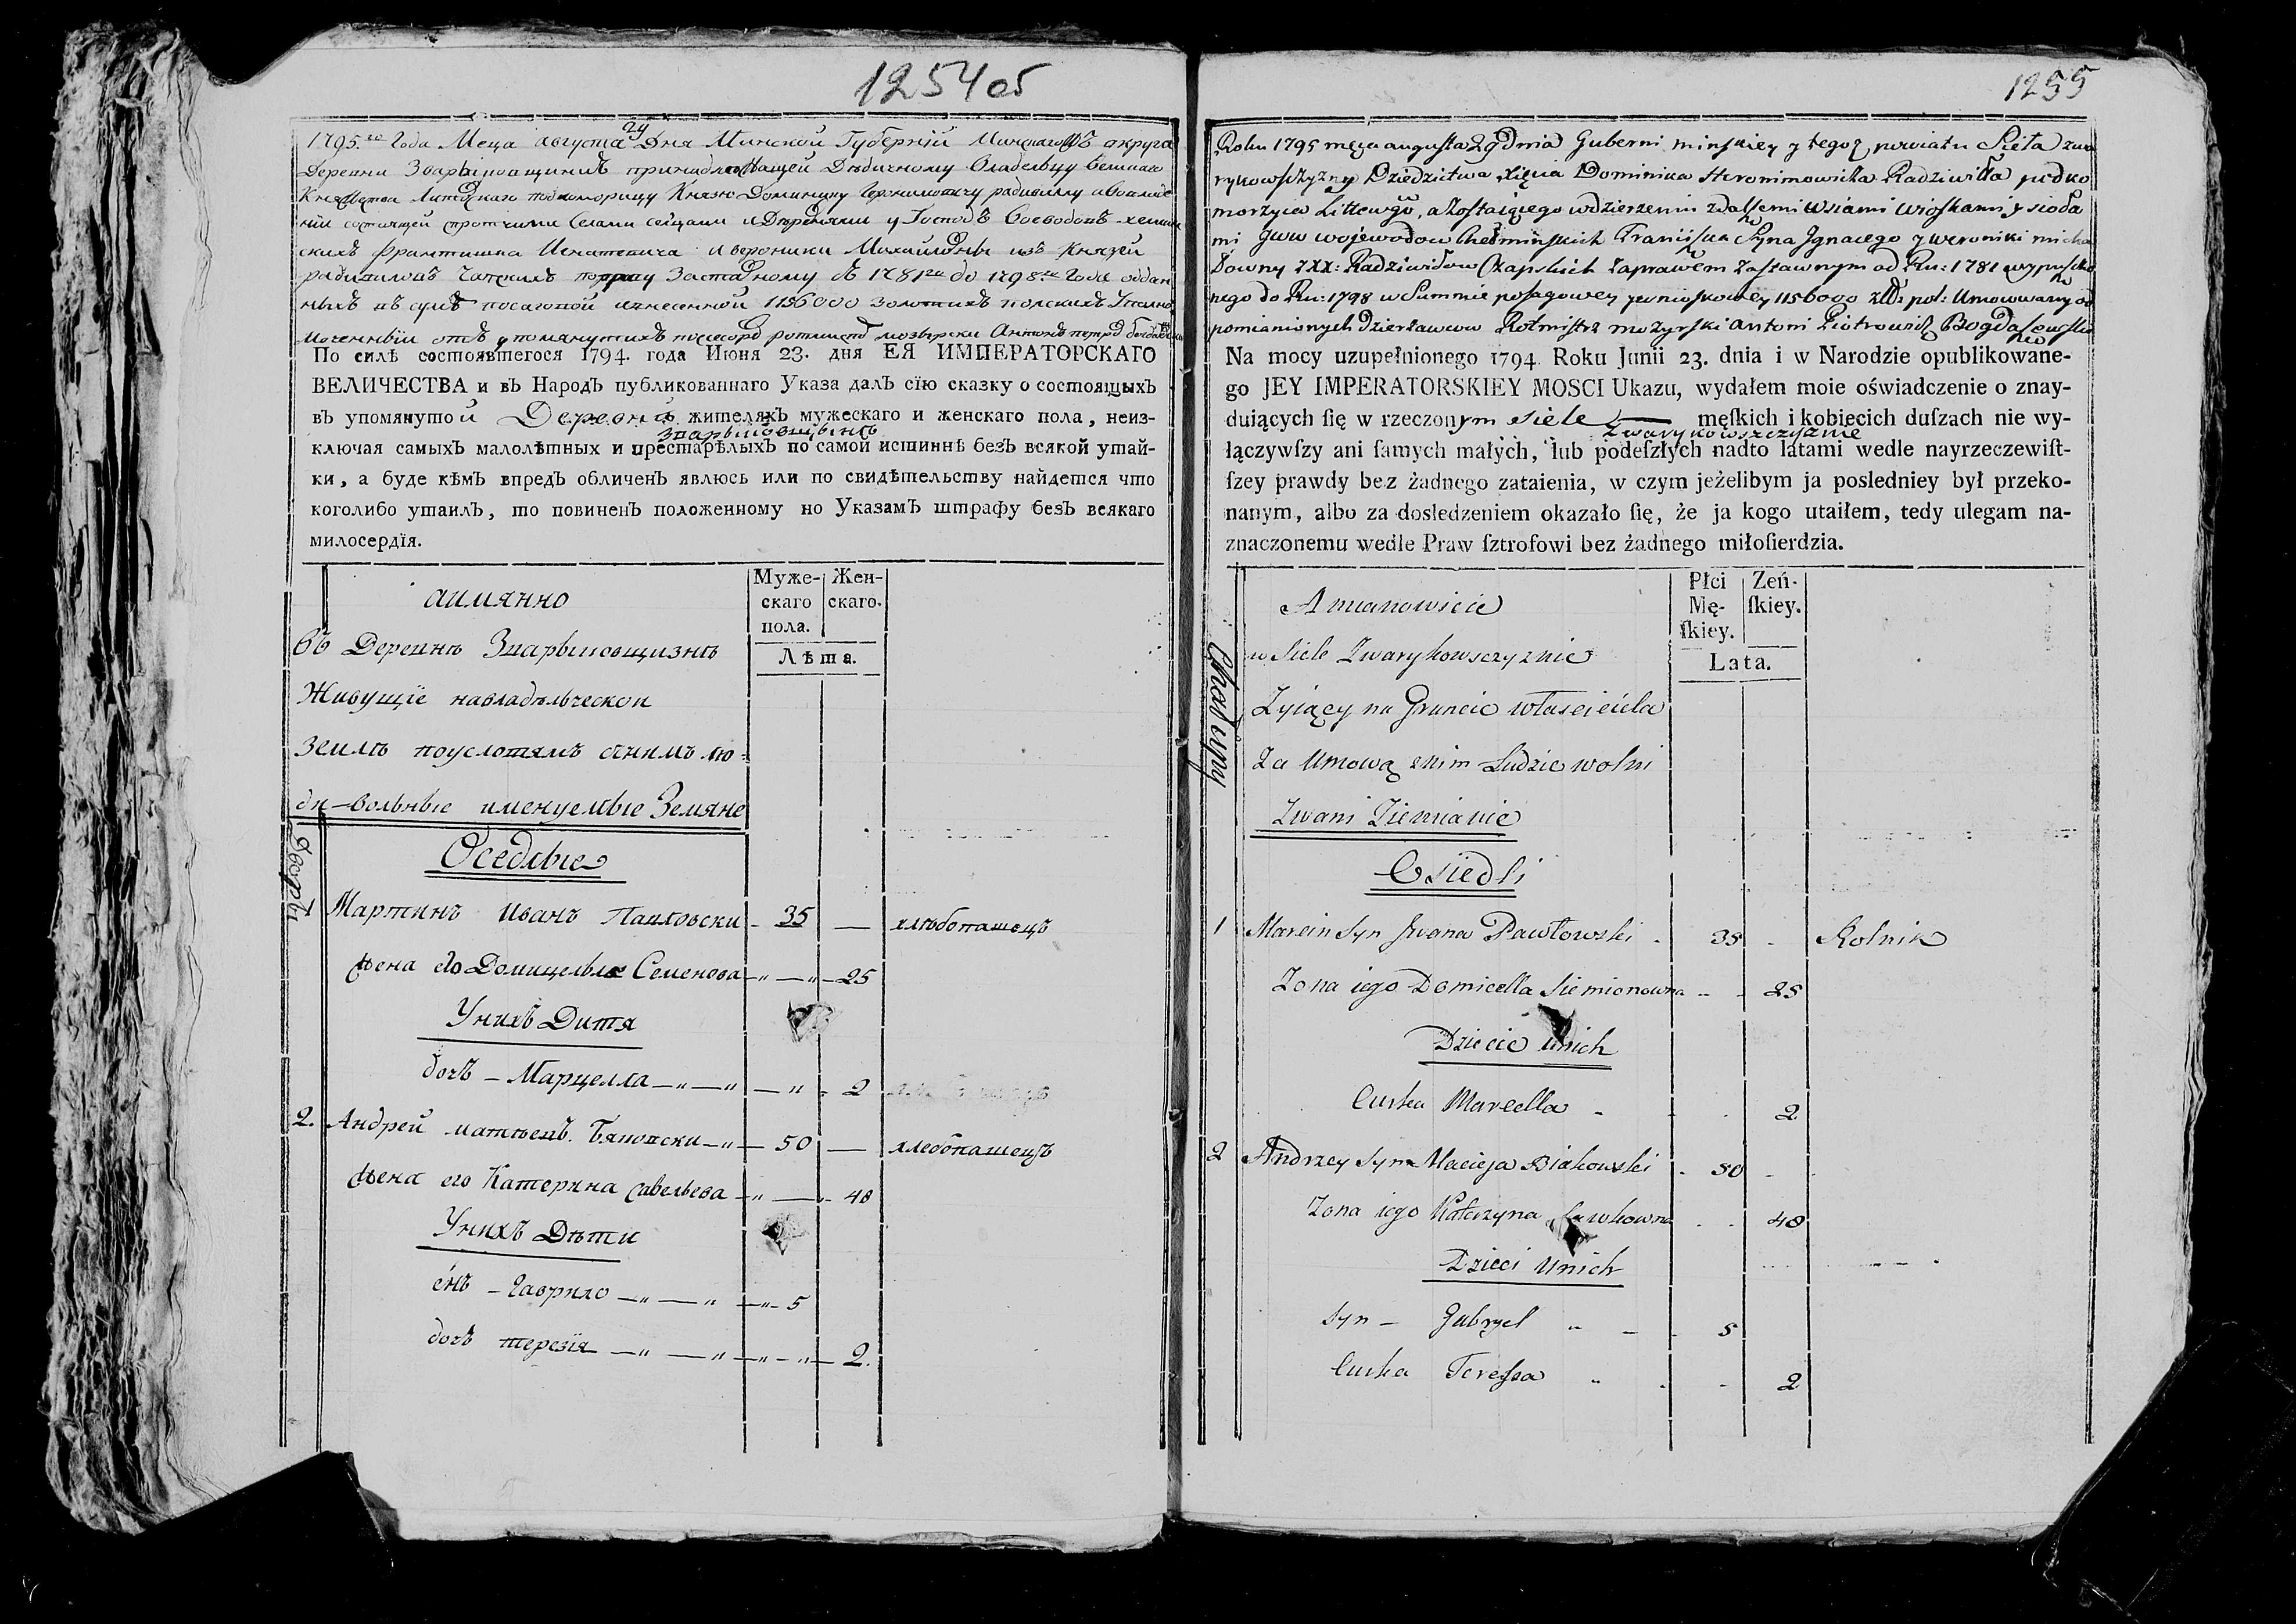 1254 об
1795.го Года Меца августа 29 Дня Минской Губернїи Минскаго округа
Деревни Звариковщизнъ принадлежащей Дѣдичному Владельцу Великаго
Княжества Литовскаго подкоморицу Князю Доминику Геронимовичу радивиллу а во владе
нїи состоящей спротчими Селами селцами и Деревнями у Господъ Воеводовъ хелмин
скихъ Франтишка Игнатевича и вероники Михайловны изъ Князей
радивиловъ Чапскихъ по праву Заставному съ 1781го до 1798го Года отдан
ныхъ въ сумѣ посаговой изнесенной 1156000 Золотихъ полскихъ Уполно
моченный отъ упомянутихъ ротмистръ мозырски Антонъ петровъ
По силѣ состоявшегося 1794. года Июня 23. дня ЕЯ ИМПЕРАТОРСКАГО
ВЕЛИЧЕСТВА и въ Народъ публикованнаго Указа далъ сїю сказку о состоящыхъ
въ упомянутой Деревни жителяхъ мужескаго и женскаго пола, неиз-
Зварыковщызнѣ
ключая самыхъ малолѣтныхъ и престарѣлыхъ по самой истиннѣ безъ всякой утай-
ки, а буде кѣмъ впредъ обличенъ явлюсь или по свидѣтельству найдется что
коголибо утаилъ, то повиненъ положенному по Указамъ штрафу безъ всякаго
милосердїя.
аимянно
Муже-скаго пола.
Жен-скаго.
Лѣта.
Въ Деревнѣ Зварыковщизнѣ
Живущїе навладѣльческой
Землѣ поусловямъ снимъ лю=
ди—вольные именуемые Земяне
Дворы
Оседлые
1 Мартинъ Иванъ Павловски - 35 — хлѣбопашецъ
жена его Домицелля Семенова —„—„— 25
Унихъ Дитя
дочъ — Марцелла —„—„ —„ - 2
2. Андрей матвеевъ Бяковски —„— 50 — хлебопашецъ
жена его Катерина савельева —„—„- 48
Унихъ Дѣти
снъ — Гаврило —„—„ —„- 5
дочъ терезїя —„—„—„—„— 2.
1255
Roku 1795 męca augusta 29 dnia Guberni minskiey y tegoż powiatu Sieła zwa
rykowszczyzny Dziedzictwa Xięcia Dominika Heronimowicza Radziwiłła podko
morzyca Littewgo, a zostaiącego w dzierzeniu z dalszemi wsiami wioskami y sioła
mi JWW wojewodow Chełminskich Franciszka Syna Jgnacego y weroniki micha
łowny z XX: Radziwiłow Czapskich za prawem zastawnym od Ru: 1781 wypuszczo
nego do Ru: 1798 w Summie posagowey 1156000 złł: pol: Umocowany od
pomianionych Dzierzawcow Rotmistrz mozyrski Antoni Piotrowicz Bogdaszewski
Na mocy uzupełnionego 1794 Roku Junii 23. dnia i w Narodzie opublikowane-
go JEY IMPERATORSKIEY MOSCI Ukazu, wydałem moie oświadczenie o znay-
duiących ſię w rzeczonym siele — męſkich i kobiecich duſzach nie wy-
Zwarykowszczyznie
łączywſzy ani ſamych małych, lub podeſzłych nadto latami wedle nayrzeczewiſt-
ſzey prawdy bez żadnego zataienia, w czym jeżelibym ja posledniey był przeko-
nanym, albo za dosledzeniem okazało ſię, że ja kogo utaiłem, tedy ulegam na-
znaczonemu wedle Praw ſztrofowi bez żadnego miłoſierdzia.
A mianowicie
Płci Mę-ſkiey.
Zeń-ſkiey.
Lata.
w Siele Zwarykowszczyznie
Żyiący na Gruncie właściciela
Za Umową z nim Ludzie wolni
Zwani Ziemianie
Osiedli
1 Marcin Syn Jwana Pawłowski - 35 - Rolnik
Zona iego Domicella Siemionowna - - 25
Dziecie Unich
Curka Marcella - 2
2 Andrzey Syn Macieja Biakowski - 50 -
Zona iego Katarzyna Sawkowna - - 48
Dzieci Unich
Syn — Gabryel „ — - 5
Curka Teressa „ - - 2